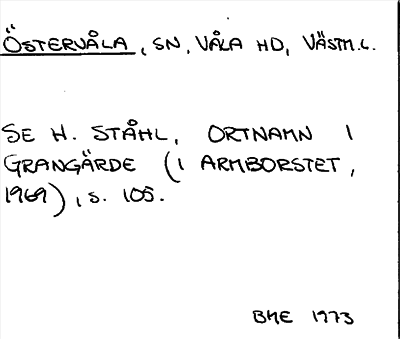 ÖSTERVÅLA, SN, VÅLA HD, VÄSTM. L.
SE H. STÅHL, ORTNAMN I
GRANGÄRDE (I ARMBORSTET,
1969), S. 105.
BME 1973